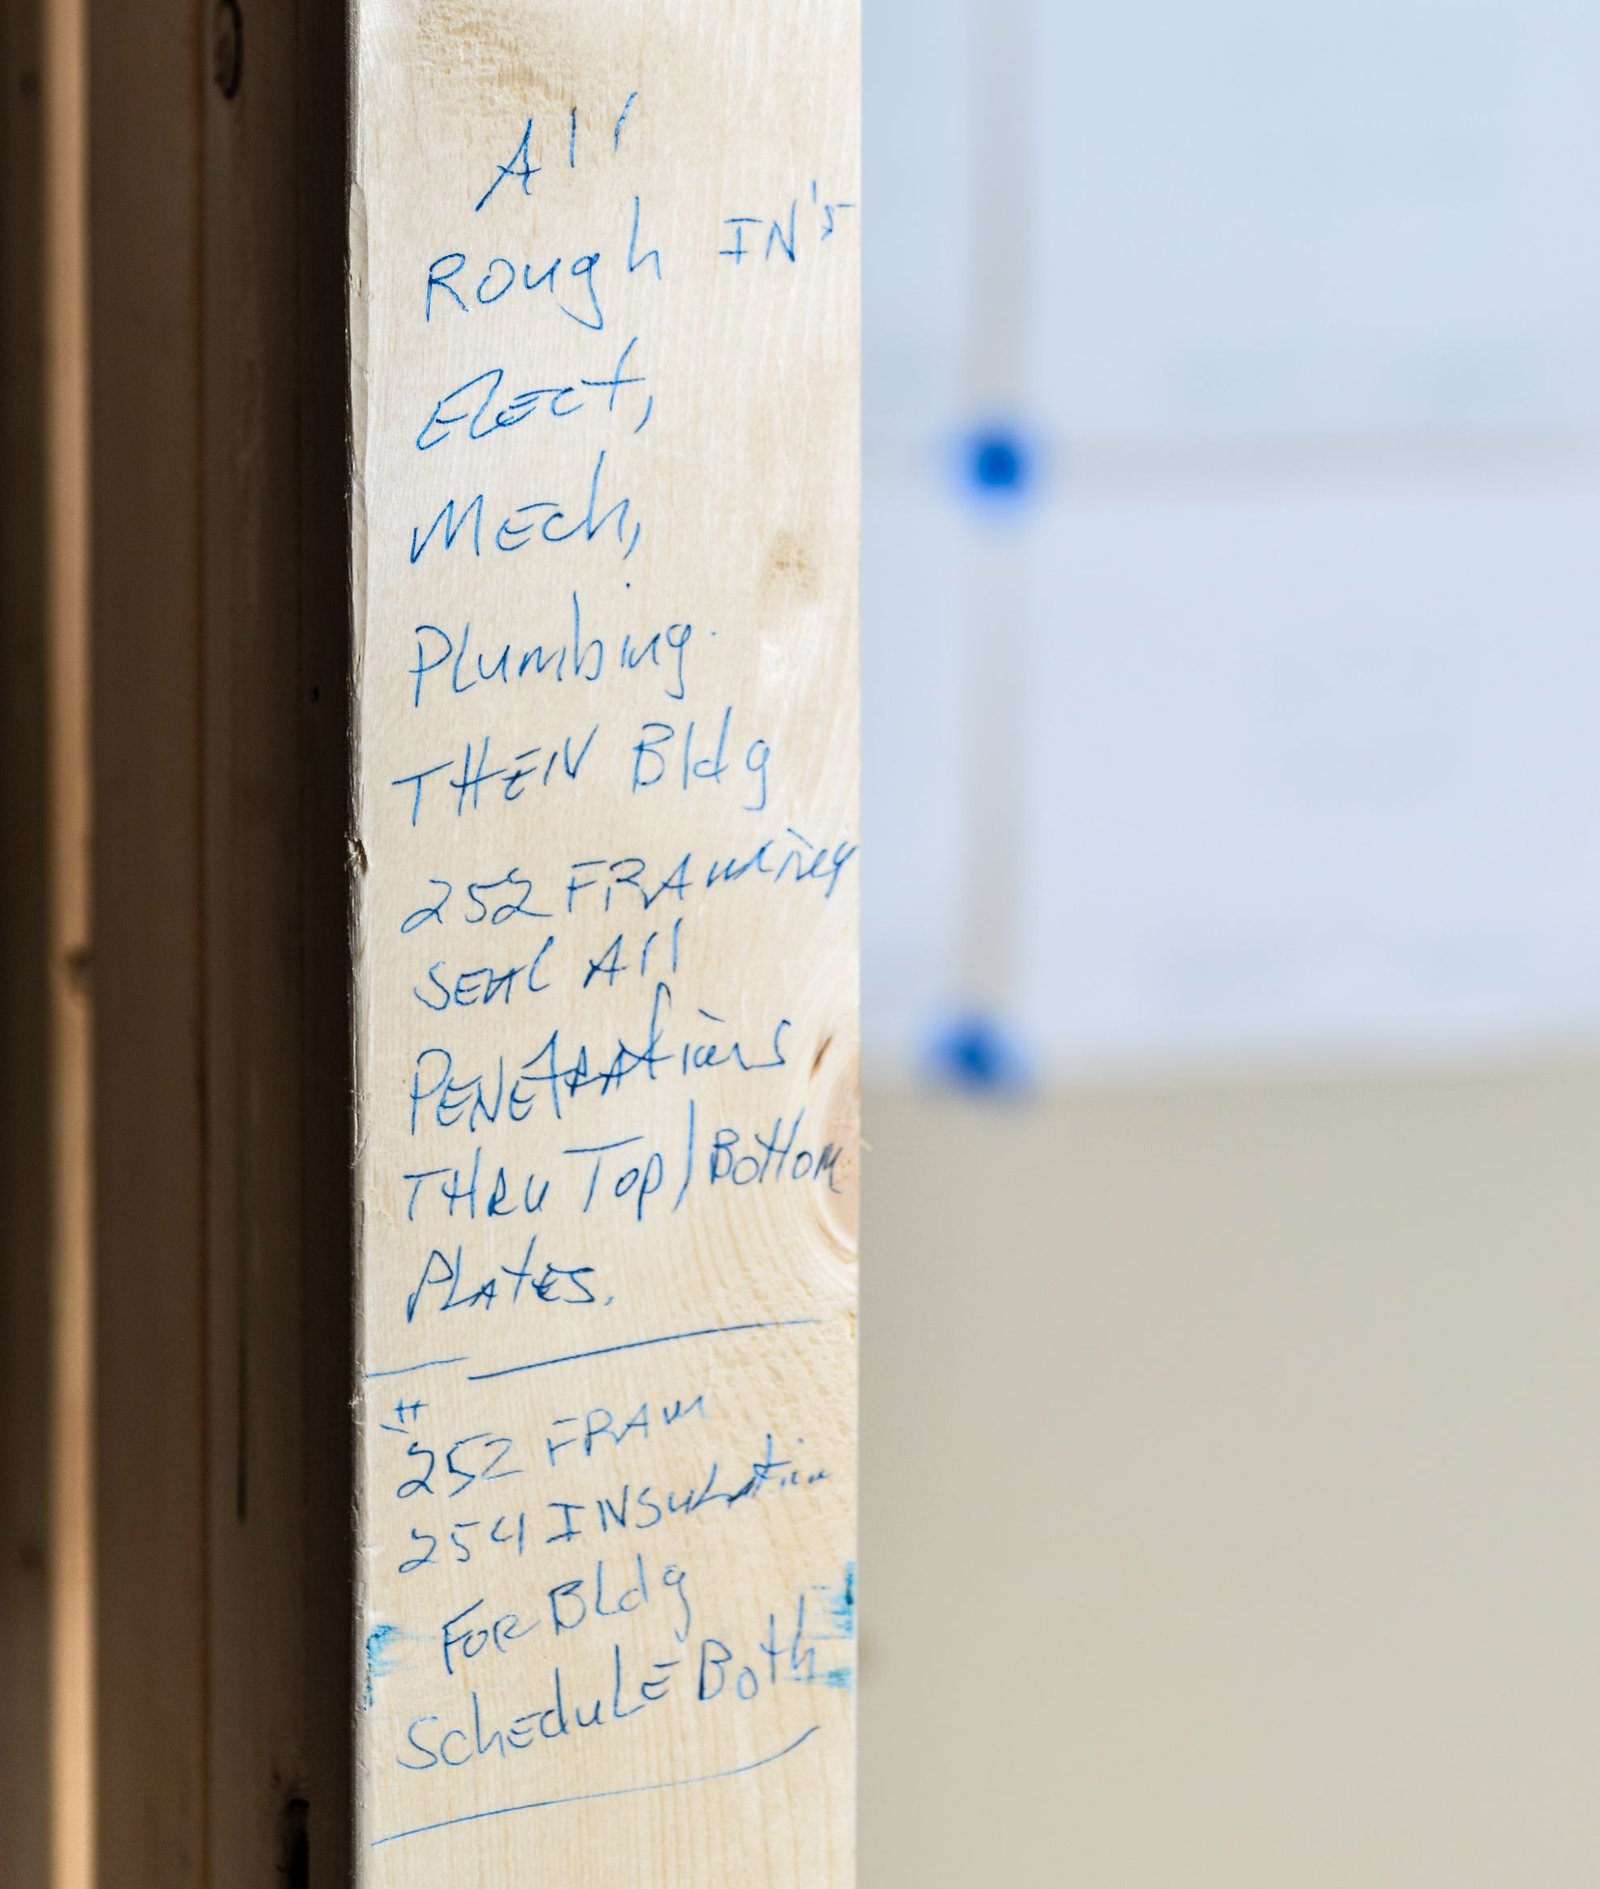 All
Rough IN's
Elect,
Mech,
Plumbing.
THEN Bldg
252 FRAming
SEAL All
PENETRAtions
THRU Top/Bottom
PLATES.
#
252 FRAM
254 INSULAtion
FOR BLdg
SchEduLE Both